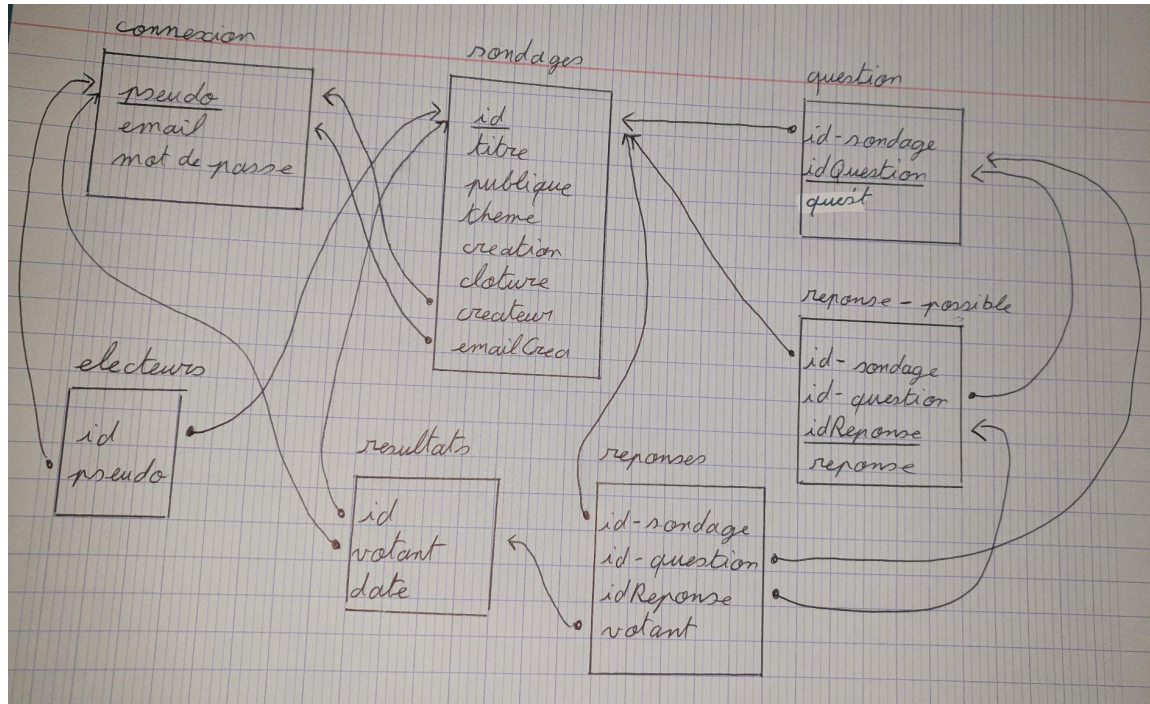 connexion
pseudo
email
mot de passe
sondages
id
titre
publique
theme
creation
cloture
createur
emailCrea
question
id-sondage
idQuestion
quest
reponse-possible
id-sondage
id-question
idReponse
reponse
electeurs
id
pseudo
resultats
id
votant
date
reponses
id-sondage
id-question
idReponse
votant